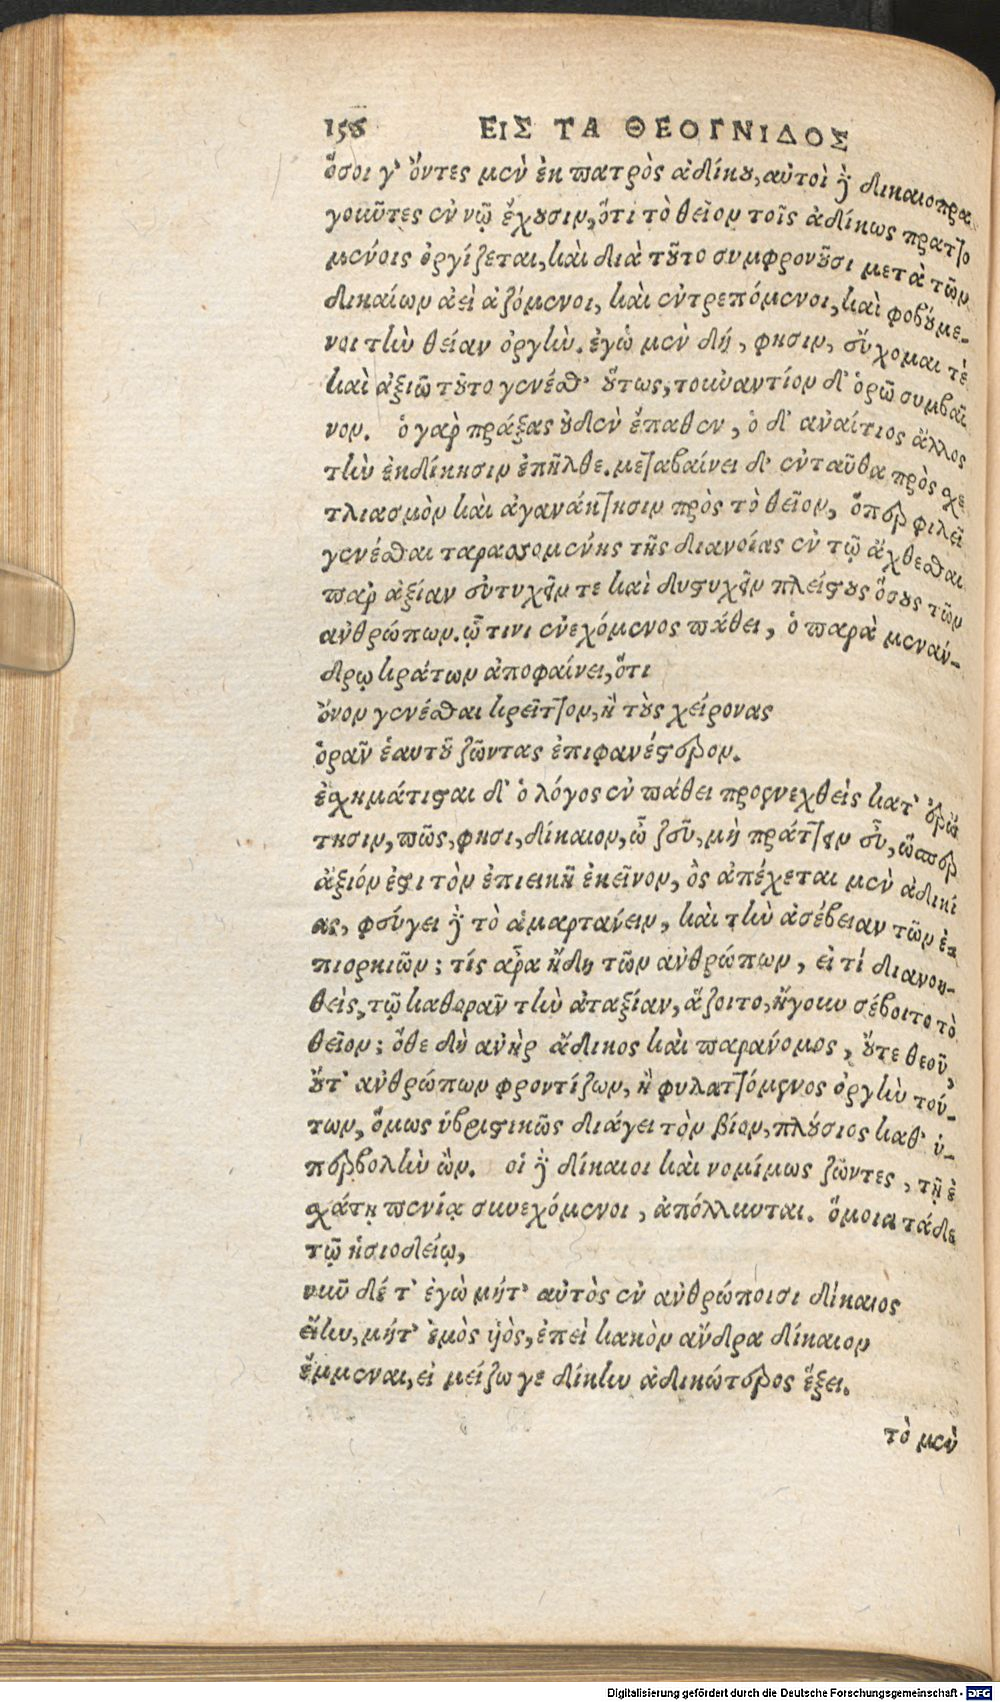 158 ΕΙΣ ΤΑ ΘΕΟΓΝΙΔΟΣ
ὅσοι γ' ὄντες μὲν ἐκ πατρὸς ἀδίκου, αὐτοὶ δὲ δικαιοπρα
γοῦντες ἐν νῷ ἔχουσιν, ὅτι τὸ θεῖον τοῖς ἀδίκως πραττο
μένοις ὀργίζεται, καὶ διὰ τοῦτο συμφρονοῦσι μετὰ τῶν
δικαίων ἀεὶ ἁζόμενοι, καὶ ἐντρεπόμενοι, καὶ φοβούμε-
νοι τὴν θείαν ὀργήν. ἐγὼ μὲν δή, φησιν, εὔχομαι τὲ
καὶ ἀξιῶ τοῦτο γενέσθ' οὕτως, τοὐναντίον δ' ὁρῶ συμβαῖ
νον. ὁ γὰρ πράξας οὐδὲν ἔπαθεν, ὁ δ' ἀναίτιος ἄλλος
τὴν ἐκδίκησιν ἐπῆλθε. μεταβαίνει δ' ἐνταῦθα πρὸς σχε
τλιασμὸν καὶ ἀγανάκτησιν πρὸς τὸ θεῖον, ὅπερ φιλεῖ
γενέσθαι ταρασσομένης τῆς διανοίας ἐν τῷ ἄχθεσθαι
παρ ἀξίαν εὐτυχεῖν τε καὶ δυστυχεῖν πλείστους ὅσους τῶν
ἀνθρώπων. ᾧ τινι ἐνεχόμενος πάθει, ὁ παρὰ μενάν-
δρῳ κράτων ἀποφαίνει, ὅτι
ὄνον γενέσθαι κρεῖττον, ἢ τοὺς χείρονας
ὁρᾶν ἑαυτοῦ ζῶντας ἐπιφανέστερον.
ἐσχημάτισται δ' ὁ λόγος ἐν πάθει προσενεχθεὶς κατ' ἐρώ
τησιν, πῶς, φησι, δίκαιον, ὦ ζεῦ, μὴ πράττειν εὖ, ὥσπερ
ἄξιόν ἐστι τὸν ἐπιεικῆ ἐκεῖνον, ὃς ἀπέχεται μὲν ἀδικί
ας, φεύγει δὲ τὸ ἁμαρτάνειν, καὶ τὴν ἀσέβειαν τῶν ἐ
πιορκιῶν; τίς ἆρα ἤδη τῶν ἀνθρώπων, εἰ τί διανοη-
θεὶς, τῷ καθορᾶν τὴν ἀταξίαν, ἅζοιτο, ἤγουν σέβοιτο τὸ
θεῖον; ὅθε δὴ ἀνὴρ ἄδικος καὶ παράνομος, οὔτε θεοῦ,
οὔτ' ἀνθρώπων φροντίζων, ἢ φυλαττόμενος ὀργὴν τού-
των, ὅμως ὑβριστικῶς διάγει τὸν βίον, πλούσιος καθ' ὑ-
περβολὴν ὤν. οἱ δὲ δίκαιοι καὶ νομίμως ζῶντες, τῇ ἐ
σχάτῃ πενίᾳ συνεχόμενοι, ἀπόλλυνται. ὅμοια τάδε
τῷ ἡσιοδείῳ,
νῦν δέ τ' ἐγὼ μήτ' αὐτὸς ἐν ἀνθρώποισι δίκαιος
εἴην, μήτ' ἐμὸς υἱὸς, ἐπεὶ κακὸν ἄνδρα δίκαιον
ἔμμεναι, εἰ μείζω γε δίκην ἀδικώτερος ἕξει.
τὸ μὲν
Digitalisierung gefördert durch die Deutsche Forschungsgemeinschaft - DFG